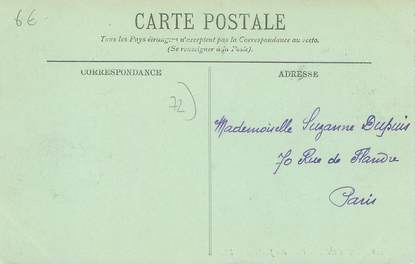 6€
CARTE POSTALE
Tous les Pays étrangers n'acceptent pas la Correspondance au recto.
(Se renseigner à la Poste).
CORRESPONDANCE
ADRESSE
72)
Mademoiselle Suzanne Dupuis
70 Rue de Flandre
Paris